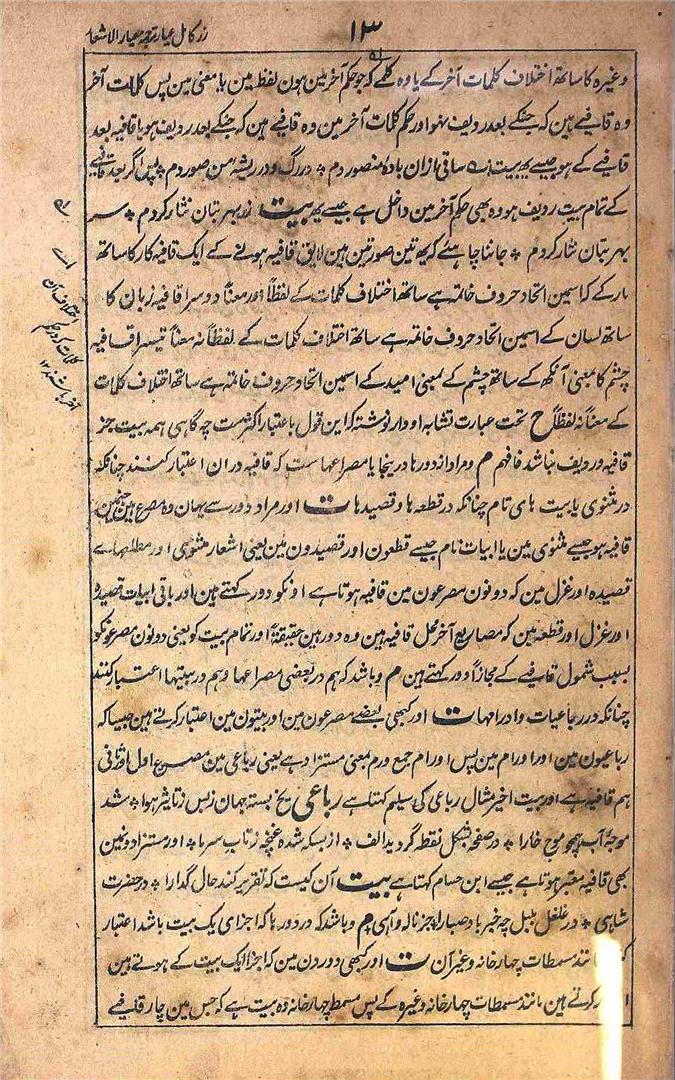 زر کامل عیار ترجمہ معیار الاشعار
۱۳
وغیرہ کا ساتھ اختلاف کلمات آخر کے یا وہ کلمے کہ جو حکم آخر مین ہون لفظ مین یا معنی مین پس کلمات آخر
وہ قافیے ہین کہ جنکے بعد ردیف نہو اور حکم کلمات آخر مین وہ قافیے ہین کہ جنکے بعد ردیف ہو یا قافیہ بعد
قافیے کے ہو جیسے یہ بیت ساقی ازان بادۂ منصور دم ٭ در رگ و در ریشۂ من صور دم ٭ پس اگر بعد قافیے
کے تمام بیت ردیف ہو وہ بھی حکم آخر مین داخل ہے جیسے یہ بیت زر بہر بتان نثار کردم ٭ سر
بہر بتان نثار کردم ٭ جاننا چاہئے کہ یہ تین صورتین ہین لایق قافیہ ہونے کے ایک قافیہ کار کا ساتھ
بار کے کہ اسمین اتحاد حروف خاتمہ ہے ساتھ اختلاف کلمات کے لفظاً اور معناً دوسرا قافیہ زبان کا
ساتھ لسان کے اسمین اتحاد حروف خاتمہ ہے ساتھ اختلاف کلمات کے لفظاً نہ معناً تیسرا قافیہ
چشم کا بمعنی آنکھ کے ساتھ چشم کے بمعنی امید کے اسمین اتحاد حروف خاتمہ ہے ساتھ اختلاف کلمات
کے معناً نہ لفظاً ح تحت عبارت تشابہ او وار نوشتہ کہ این قول باعتبار اکثرست چہ گاہی ہمہ بیت جز
قافیہ و ردیف نباشد فافہم م و مراد از دورہا درینجا یا مصراعہاست کہ قافیہ در ان اعتبار کنند چنانکہ
در مثنوی یا بیت ہای تام چنانکہ در قطعہ ہا و قصیدہا ت اور مراد دور سے یہان وہ مصرع ہین جنمین
قافیہ ہو جیسے مثنوی مین یا ابیات تام جیسے قطعون اور قصیدون مین یعنی اشعار مثنوی اور مطلعہاے
قصیدہ اور غزل مین کہ دونون مصرعون مین قافیہ ہوتا ہے اونکو دور کہتے ہین اور باقی ابیات قصیدہ
اور غزل اور قطعہ مین کہ مصاریع آخر محل قافیہ ہین وہ دور ہین حقیقۃً اور تمام بیت کو یعنی دونون مصرعونکو
بسبب شمول قافیے کے مجازاً دور کہتے ہین م و باشد کہ ہم در بعضی مصراعہا و ہم در بیتہا اعتبار کنند
چنانکہ در رباعیات و ادرامہا ت اور کبھی بعضے مصرعون مین اور بیتون مین اعتبار کرتے ہین جیسا کہ
رباعیون مین اور اورام مین پس اورام جمع ورم بمعنی مستزاد ہے یعنی رباعی مین مصرع اول اور ثانی
ہم قافیہ ہے اور بیت اخیر مثال رباعی کی سیلم کہتا ہے رباعی یخ بستہ جہان زبس ز تاثیر ہوا ٭ شد
موجۂ آب ہمچو موج خارا ٭ در صفحہ بشکل نقطہ گردید الف ٭ از بسکہ شدہ غنچہ ز تاب سرما ٭ اور مستزاد ونمین
بھی قافیہ معتبر ہوتا ہے جیسے ابن حسام کہتا ہے بیت آن کیست کہ تقریر کند حال گدارا ٭ در حضرت
شاہی ٭ در غلغل بلبل چہ خبر باد صبا را ٭ جز نالہ و آہی م و باشد کہ در دورہا کہ اجزای یک بیت باشد اعتبار
مانند مسمطات چہار خانہ و غیر آن ت اور کبھی دور دن مین کہ اجزا ایک بیت کے ہوتے ہین
کرتے ہین مانند مسمطات چہار خانہ وغیرہ کے پس مسمط چہار خانہ وہ بیت ہے کہ جس مین چار قافیے
اے
اختلاف آن
کلمات کہ در حکم
آخر باشند ۱۲